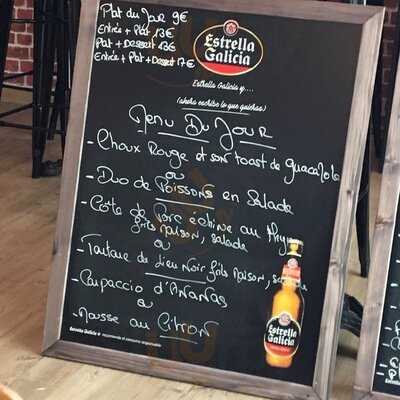 Plat du Jour 9€
Entrée + Plat 13€
Plat + Dessert 13€
Entrée + Plat + Dessert 17€
Estrella
Galicia
Estrella Galicia y....
(ahora escribe lo que quieras)
Menu Du Jour
- Choux Rouge et son toast de guacamole
ou
- Duo de Poissons en Salade
- Côte de Porc échine au Miel
frits maison, salade
ou
- Tartare de Lieu Noir frits maison, salade
- Carpaccio d'Ananas
ou
- Mousse au Citron
Estrella
Galicia
Estrella Galicia recomienda el consumo responsable